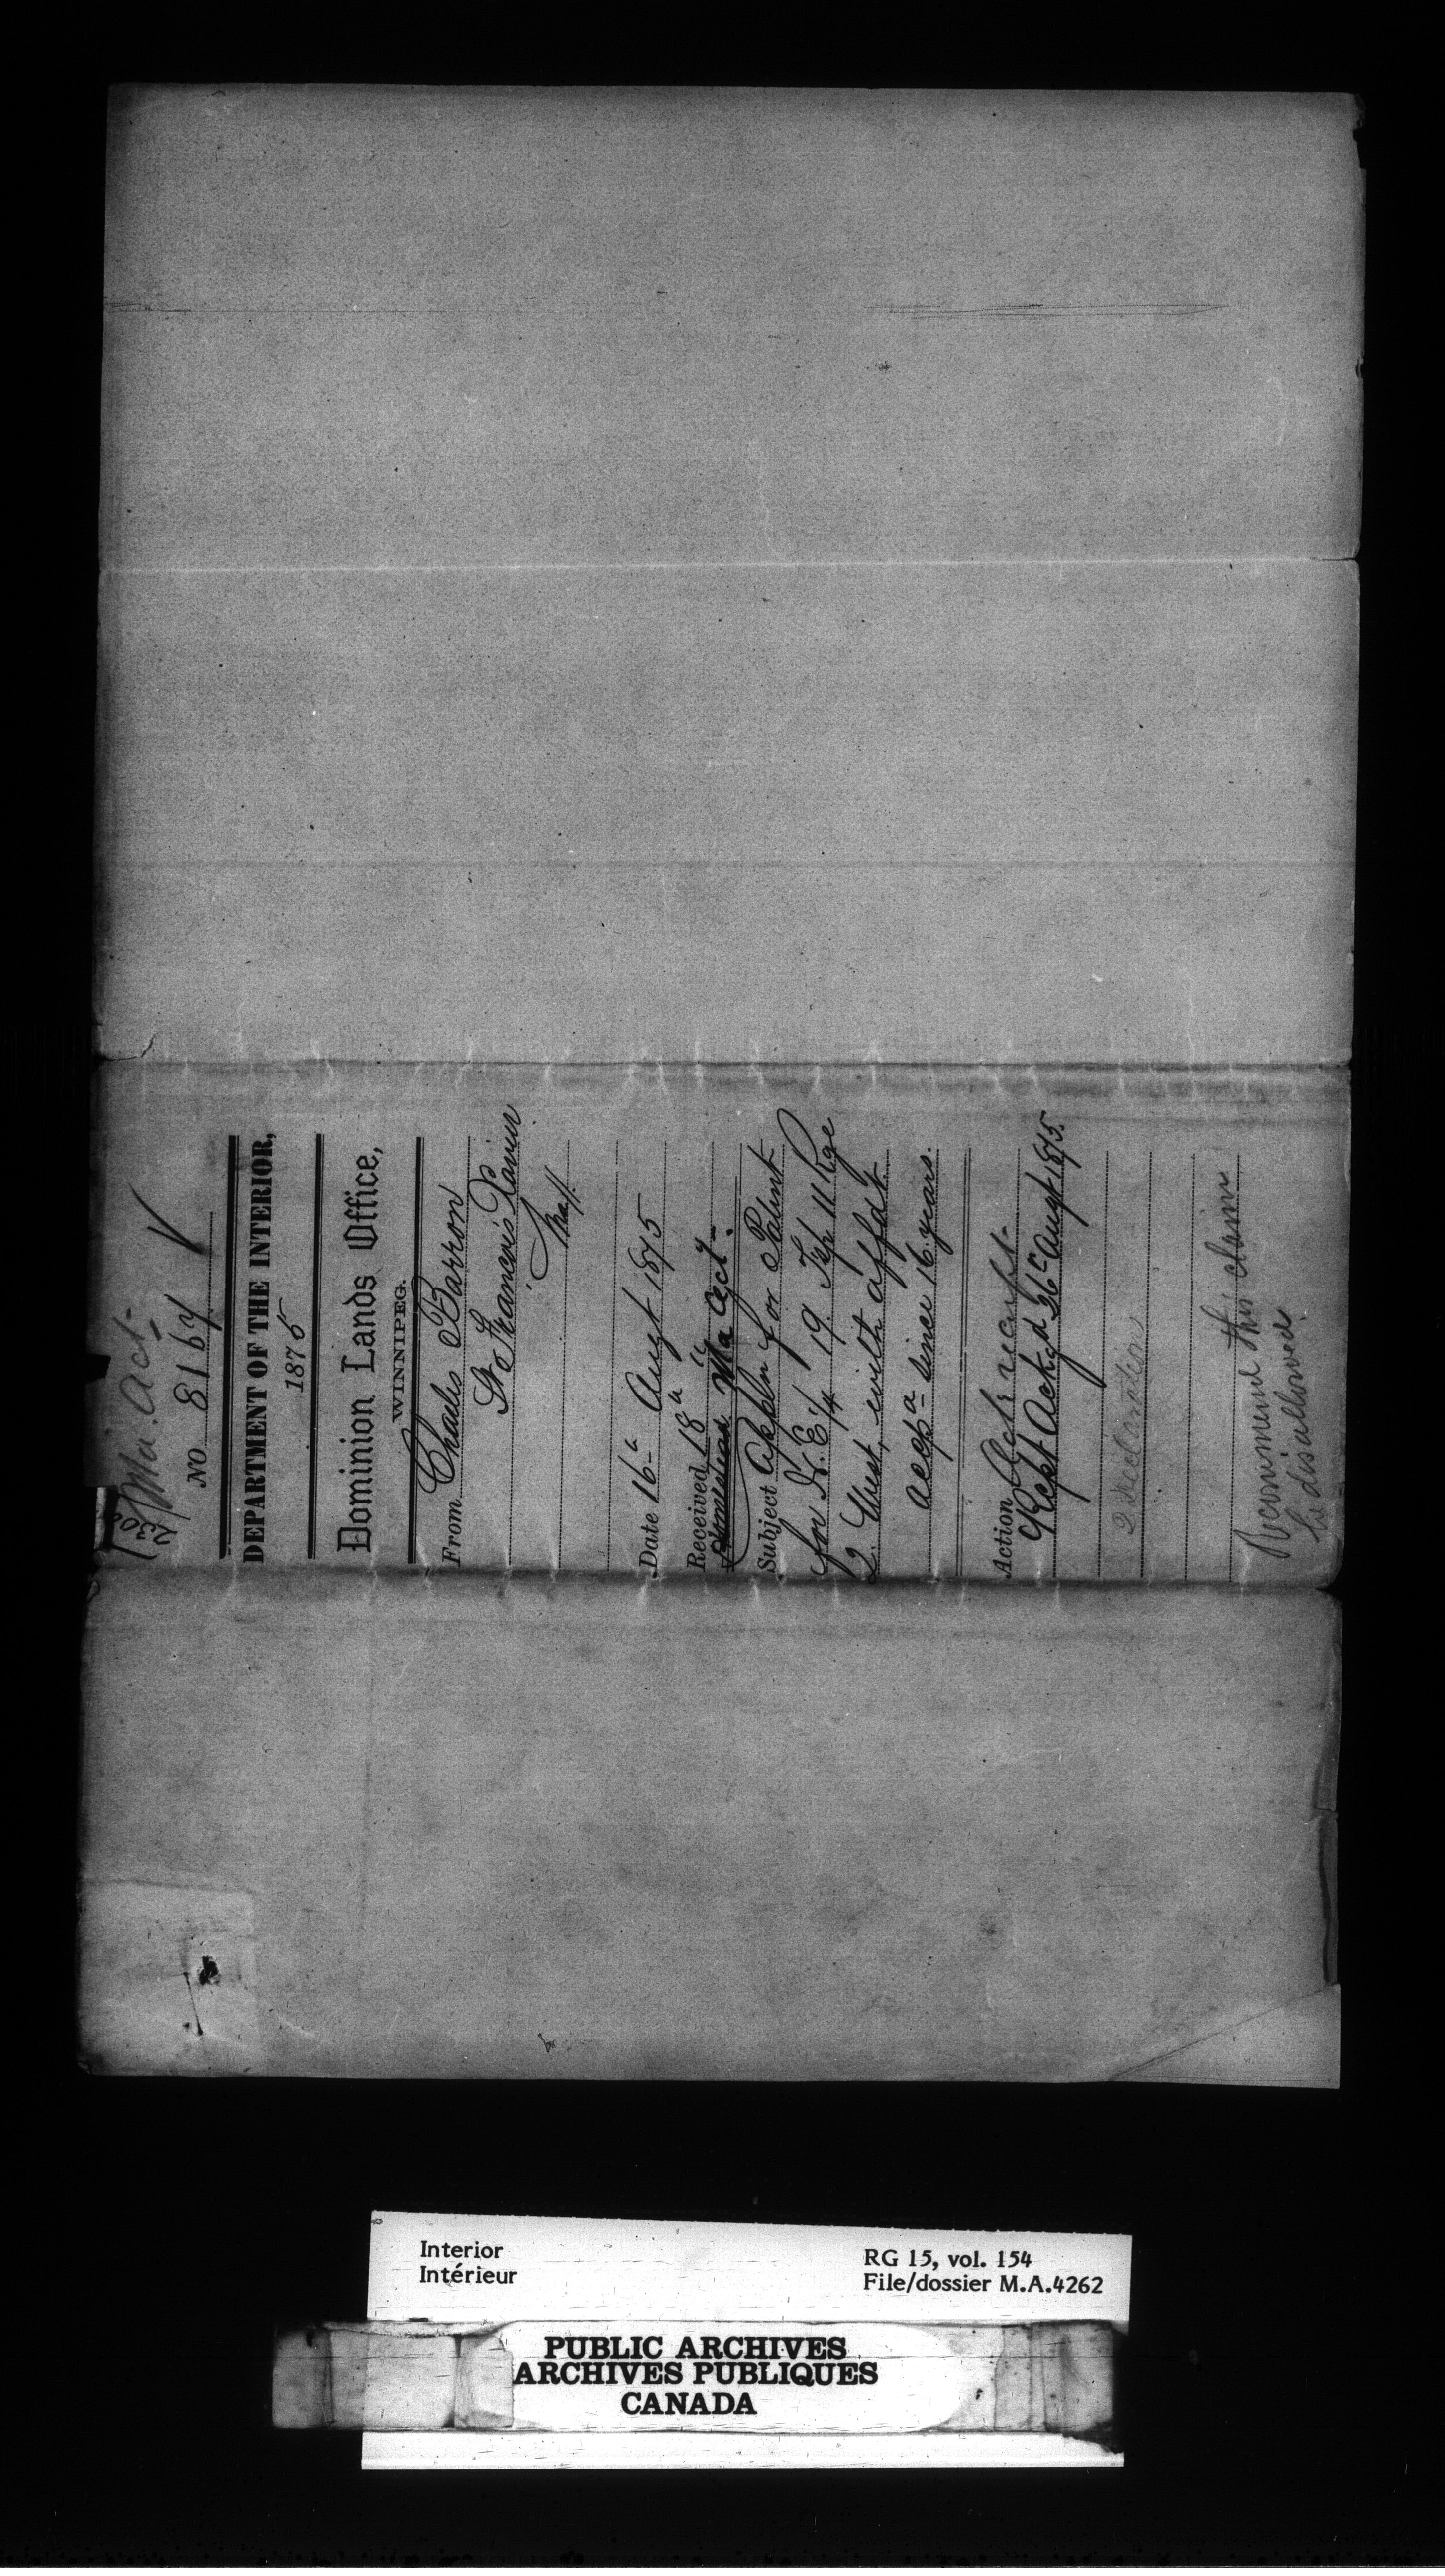 Ma. Act.
NO 8164
DEPARTMENT OF THE INTERIOR,
1875
Dominion Lands Office,
WINNIPEG.
From Charles Barron
St. Francois Xavier
Date 16 Augt 1875
Received 18 "
Homestead Ma Act.
Subject Appln for Patent
for N.E. 1/4 19. Tp 11 Rge
2. West, with affdt.
since 16 years.
Action Ack receipt
Rcpt Ackgd 26 Augt 1875.
2 Declarations
Recommend this claim
be disallowed.
Interior
Intérieur
RG 15, vol. 154
File/dossier M.A.4262
PUBLIC ARCHIVES
ARCHIVES PUBLIQUES
CANADA